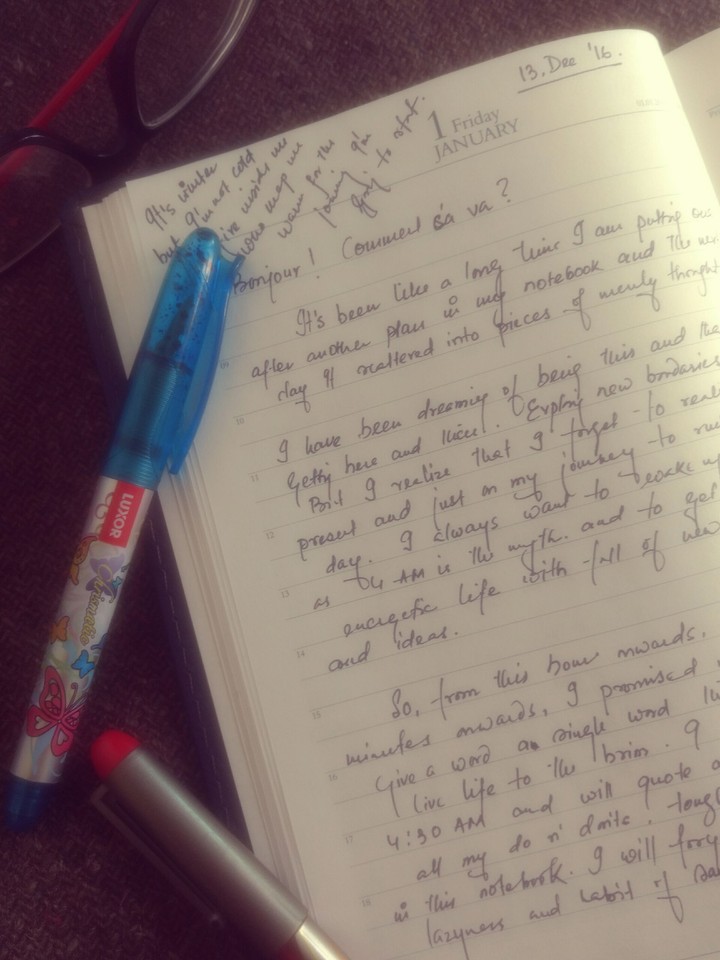 13. Dec '16.
1 Friday
JANUARY
It's winter
but I'm not cold
inside me
me
warm for the
journey I'm
to start.
Bonjour! Comment sá va?
It's been like a long time I am putting
after another plan in my notebook and the
day it scattered into pieces of merely thought
I have been dreaming of being this and tha
Getting here and there. Explorg new bondaries
But I realize that I forget to reali
present and just on my journey to ru
day. I always want to wake up
as 4 AM is the myth. and to get
energetic life with full of new
and ideas.
So, from this hour onwards,
minutes onwards, I promised
give a word a single word
live life to the brim. I
4:30 AM and will quote a
all my do n' donts. toug
in this notebook. I will
lazyness and habit of
09
10
11
12
13
14
15
16
17
18
LUXOR